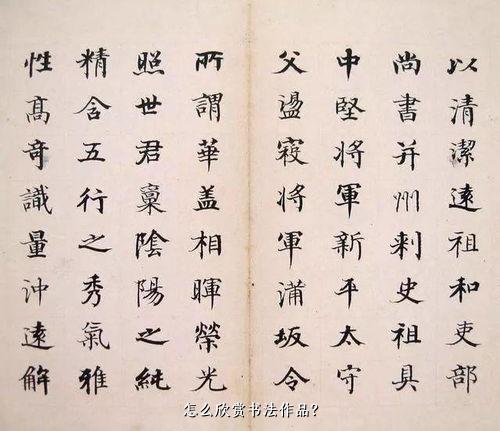 以清潔遠祖和吏部
尚書并州刺史祖具
中堅將軍新平太守
父盪寇將軍蒲坂令
所謂華盖相暉榮光
照世君稟陰陽之純
精含五行之秀氣雅
性高奇識量沖遠解
怎么欣赏书法作品?